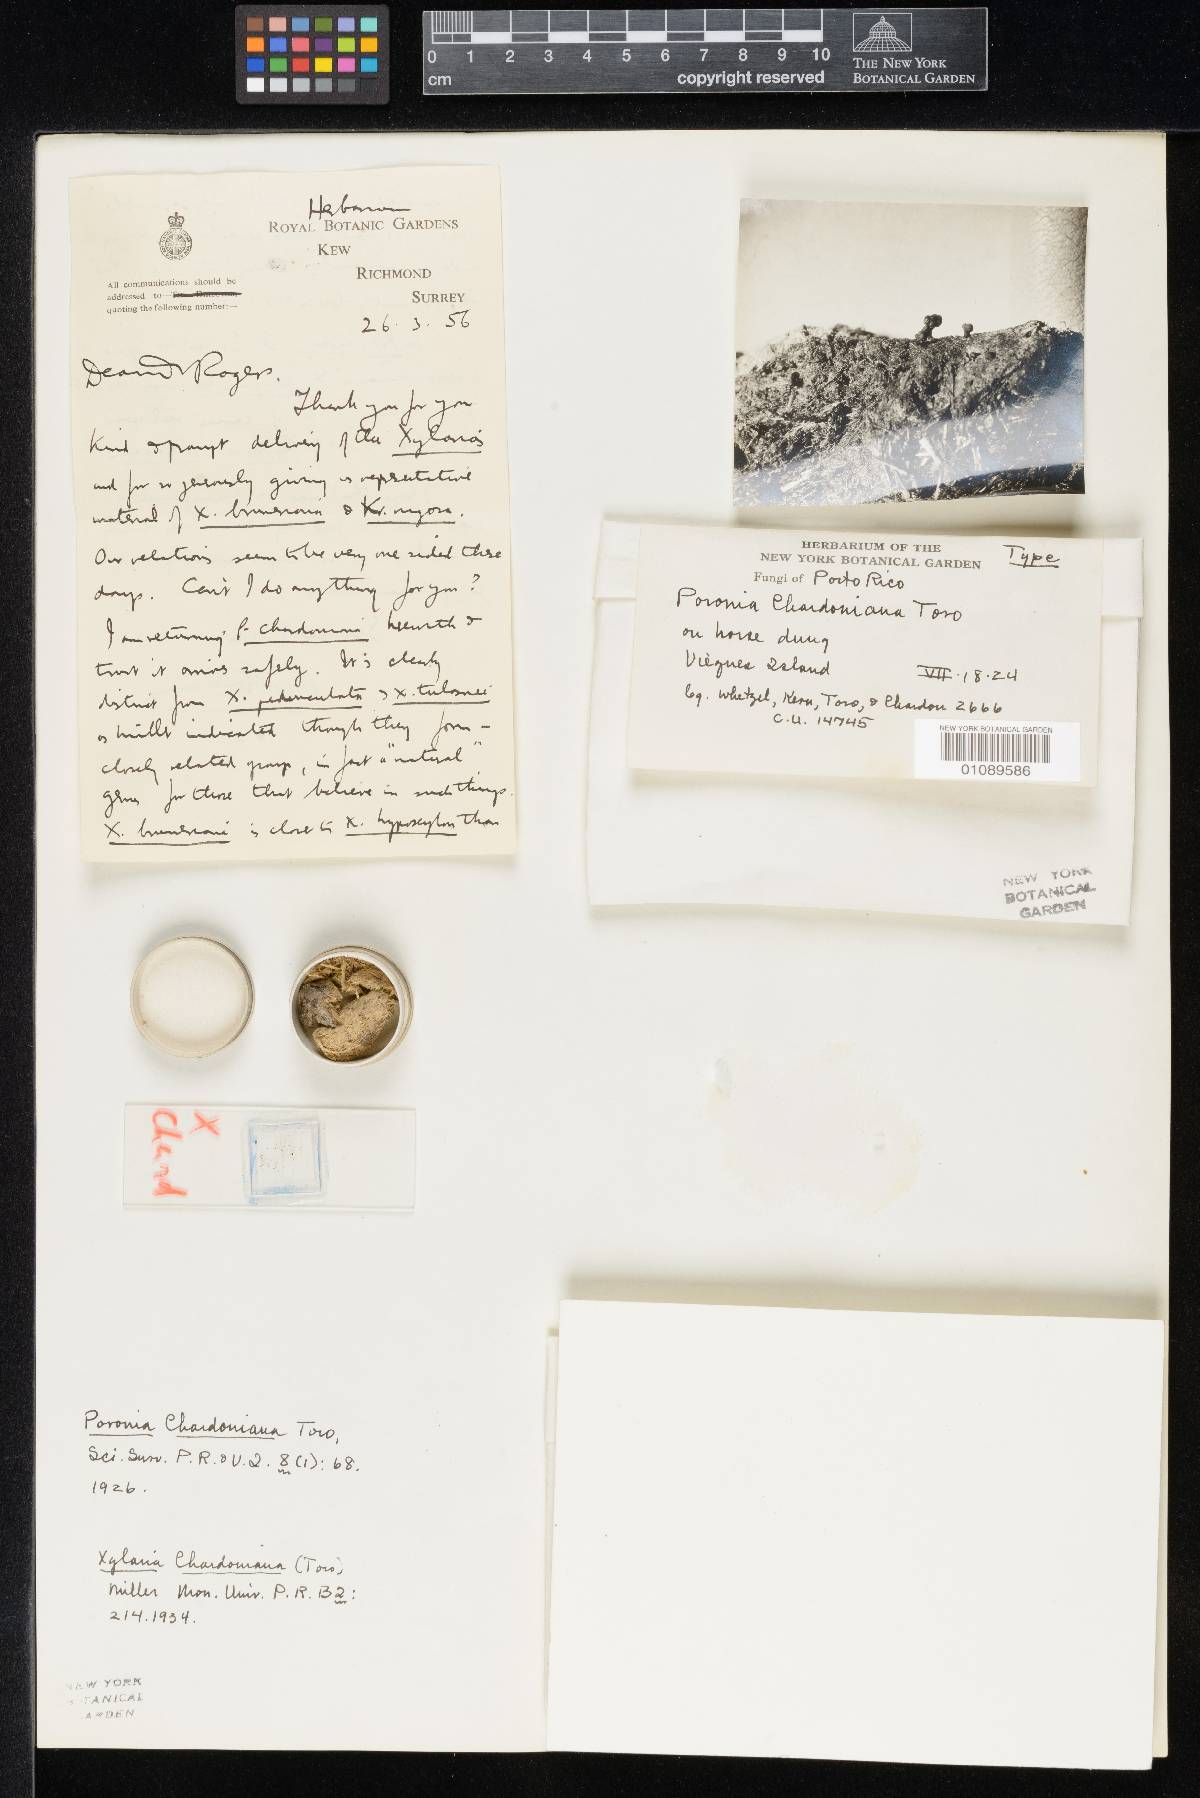 0 1 2 3 4 5 6 7 8 9 10
cm
copyright reserved
THE NEW YORK
BOTANICAL GARDEN
Herbarium
ROYAL BOTANIC GARDENS
KEW
RICHMOND
SURREY
All communications should be
addressed to
quoting the following number:—
26. 3. 56
Dear Dr Rogers.
Thank you for you
kind & prompt delivery of the Xylarias
and for so generously giving us
material of X. & X.
Our relations seem to be very one sided these
days. Can't I do anything for you?
I am returning P. chardoniana herewith &
trust it arrives safely. It's clearly
distinct from X. pedunculata & X. tulasnei
as Miller indicated though they form a
closely related group, in fact a "natural"
genus for those that believe in such things.
X. is close to X. hypoxylon than
HERBARIUM OF THE
NEW YORK BOTANICAL GARDEN
Type
Fungi of Porto Rico
Poronia Chardoniana Toro
on horse dung
Vièques Island
VII.18.24
Lg. Whetzel, Kern, Toro, & Chardon 2666
C.U. 14745
NEW YORK BOTANICAL GARDEN
01089586
NEW YORK
BOTANICAL
GARDEN
X
Chard
Poronia Chardoniana Toro,
Sci. Surv. P.R. & V.I. 8(1): 68.
1926.
Xylaria Chardoniana (Toro)
Miller Mon. Univ. P.R. B2:
214. 1934.
NEW YORK
BOTANICAL
GARDEN